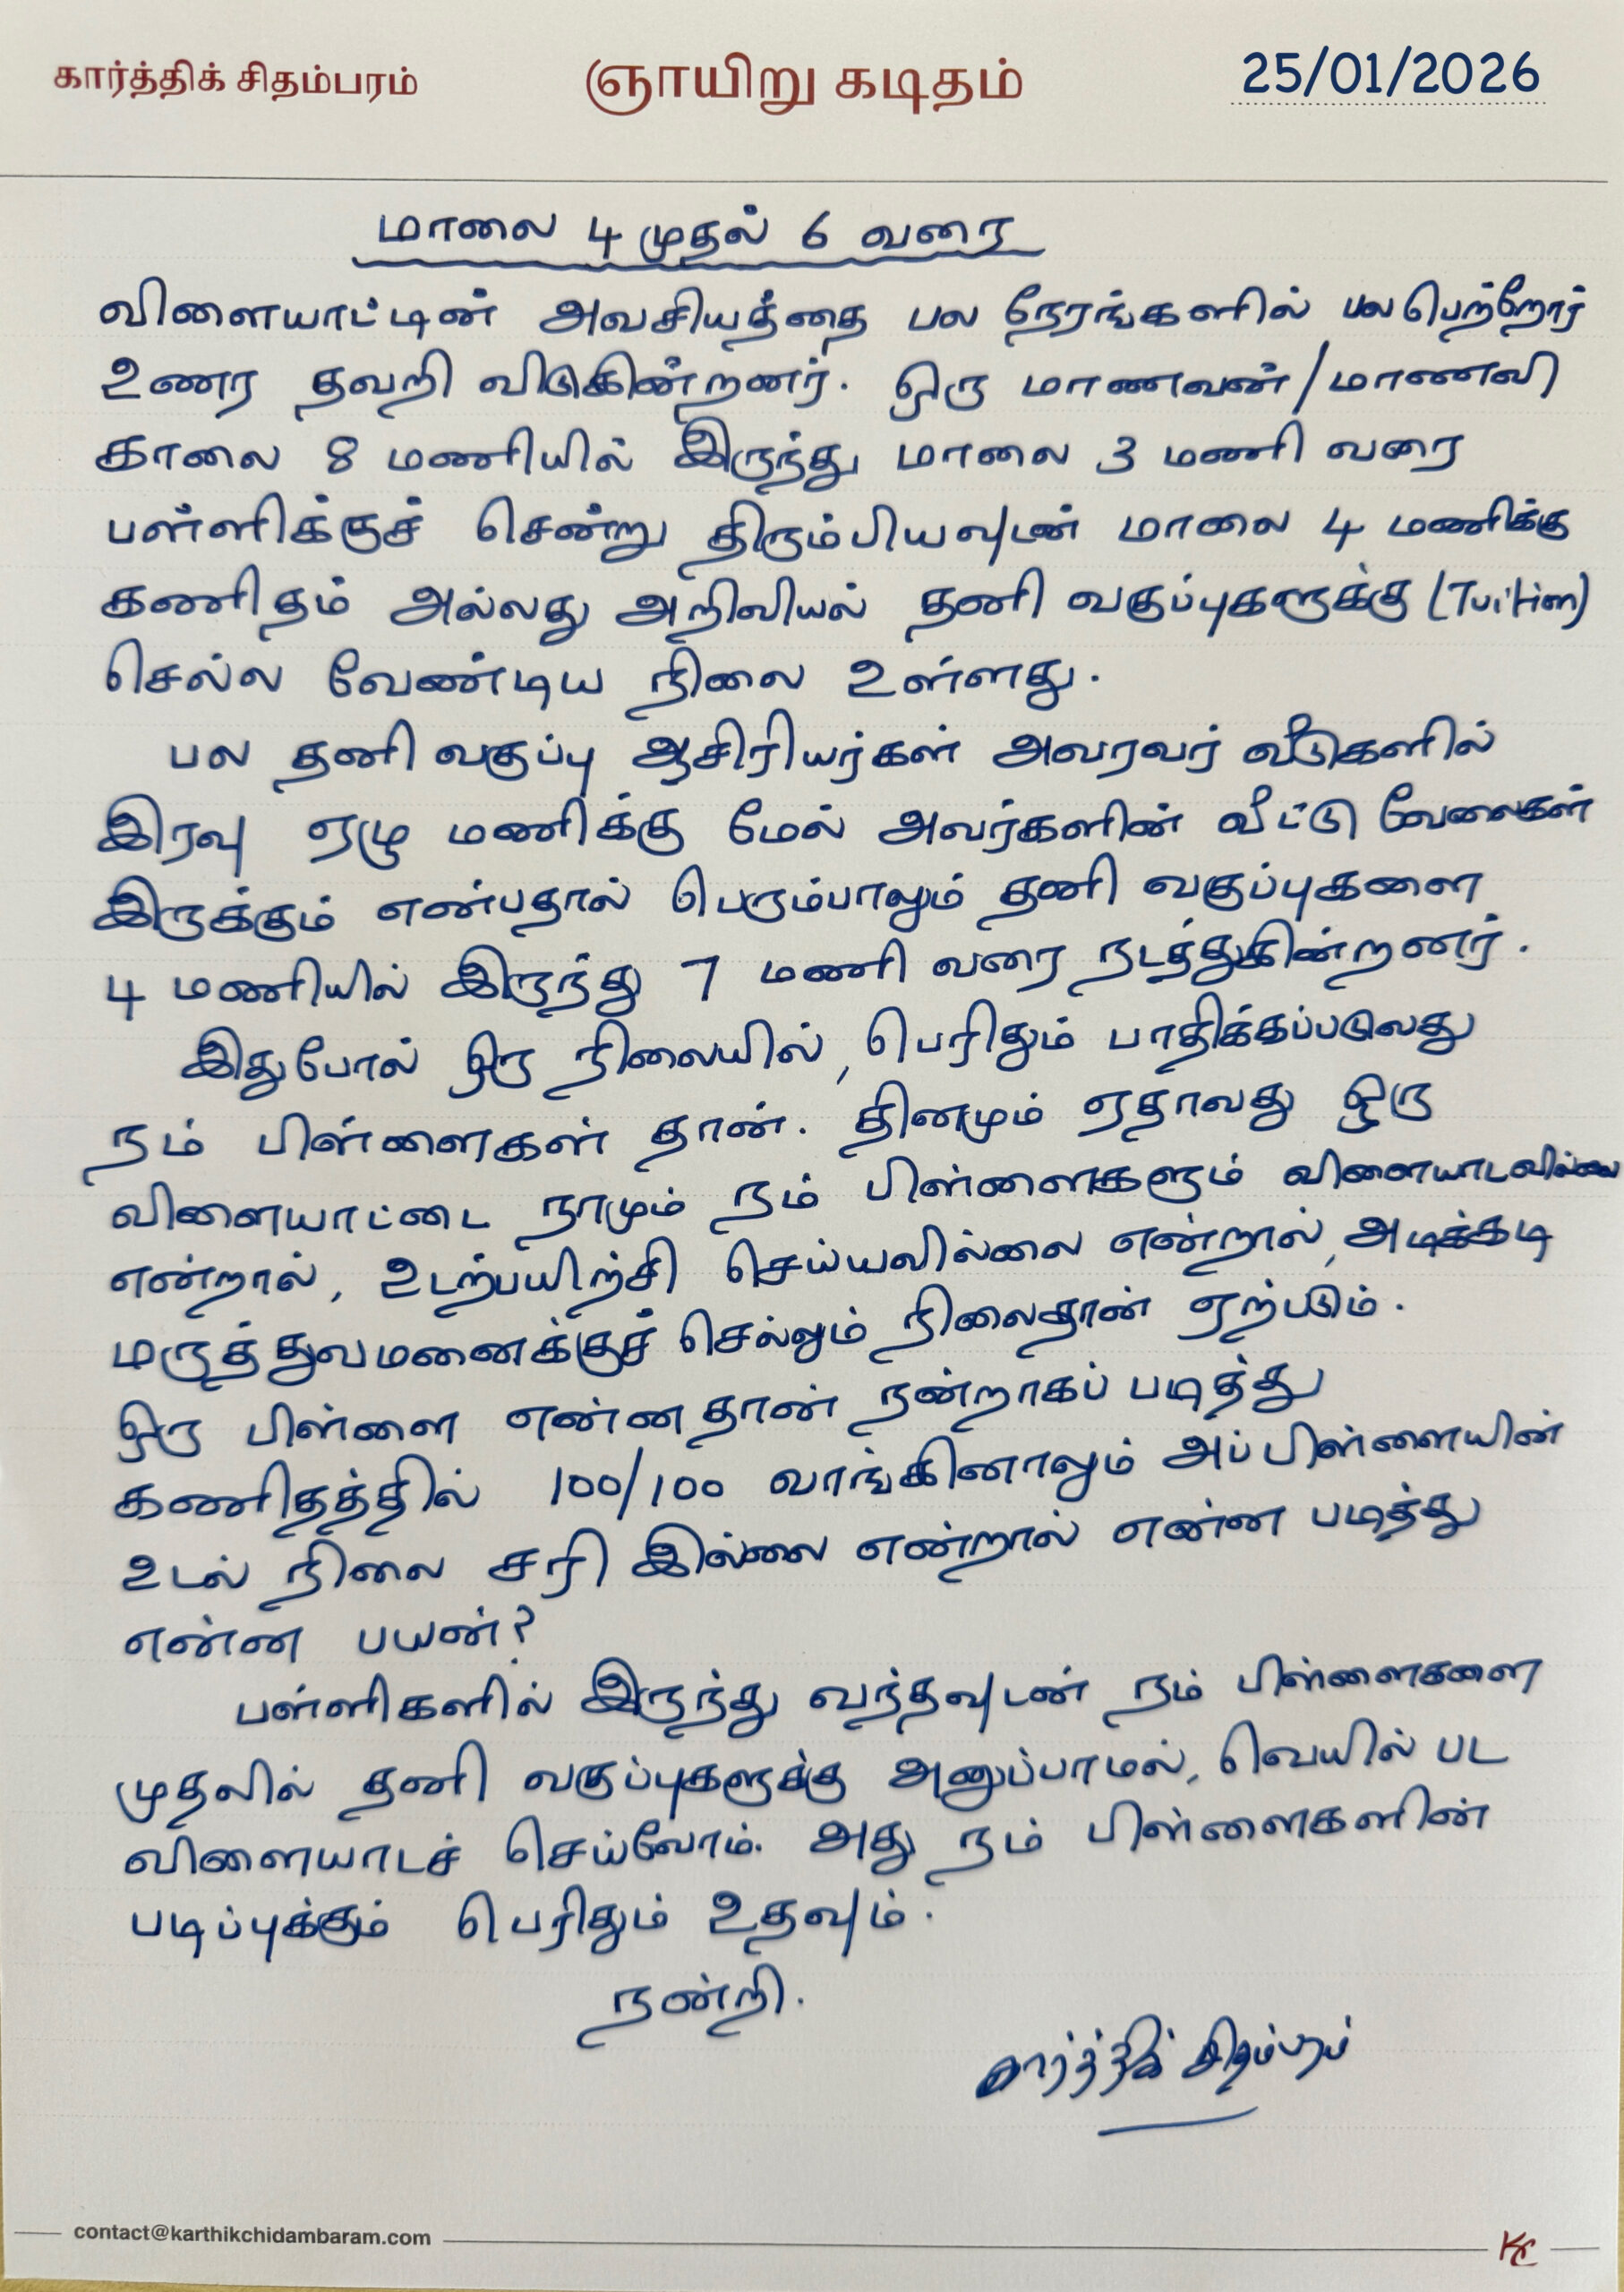 கார்த்திக் சிதம்பரம்
ஞாயிறு கடிதம்
25/01/2026
மாலை 4 முதல் 6 வரை
விளையாட்டின் அவசியத்தை பல நேரங்களில் பல பெற்றோர்
உணர தவறி விடுகின்றனர். ஒரு மாணவன்/மாணவி
காலை 8 மணியில் இருந்து மாலை 3 மணி வரை
பள்ளிக்குச் சென்று திரும்பியவுடன் மாலை 4 மணிக்கு
கணிதம் அல்லது அறிவியல் தனி வகுப்புகளுக்கு (Tuition)
செல்ல வேண்டிய நிலை உள்ளது.
பல தனி வகுப்பு ஆசிரியர்கள் அவரவர் வீடுகளில்
இரவு ஏழு மணிக்கு மேல் அவர்களின் வீட்டு வேலைகள்
இருக்கும் என்பதால் பெரும்பாலும் தனி வகுப்புகளை
4 மணியில் இருந்து 7 மணி வரை நடத்துகின்றனர்.
இதுபோல் ஒரு நிலையில், பெரிதும் பாதிக்கப்படுவது
நம் பிள்ளைகள் தான். தினமும் ஏதாவது ஒரு
விளையாட்டை நாமும் நம் பிள்ளைகளும் விளையாடவில்லை
என்றால், உடற்பயிற்சி செய்யவில்லை என்றால், அடிக்கடி
மருத்துவமனைக்குச் செல்லும் நிலைதான் ஏற்படும்.
ஒரு பிள்ளை என்னதான் நன்றாகப் படித்து
கணிதத்தில் 100/100 வாங்கினாலும் அப்பிள்ளையின்
உடல் நிலை சரி இல்லை என்றால் என்ன படித்து
என்ன பயன்?
பள்ளிகளில் இருந்து வந்தவுடன் நம் பிள்ளைகளை
முதலில் தனி வகுப்புகளுக்கு அனுப்பாமல், வெயில் பட
விளையாடச் செய்வோம். அது நம் பிள்ளைகளின்
படிப்புக்கும் பெரிதும் உதவும்.
நன்றி.
கார்த்திக் சிதம்பரம்
contact@karthikchidambaram.com
KC